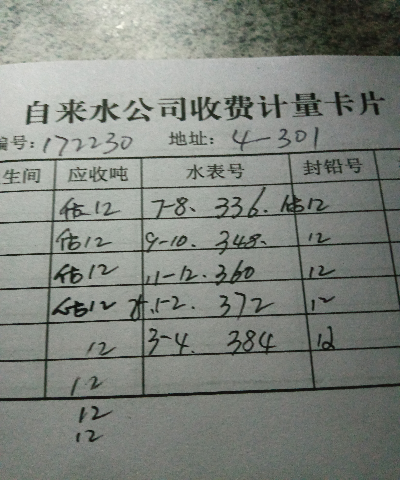 自来水公司收费计量卡片
编号:172230 地址: 4-301
生间 应收吨 水表号 封铅号
估12 7-8. 336. 估12
估12 9-10. 348. 12
估12 11-12. 360 12
估12 1-2. 372 12
12 3-4. 384 12
12
12
12